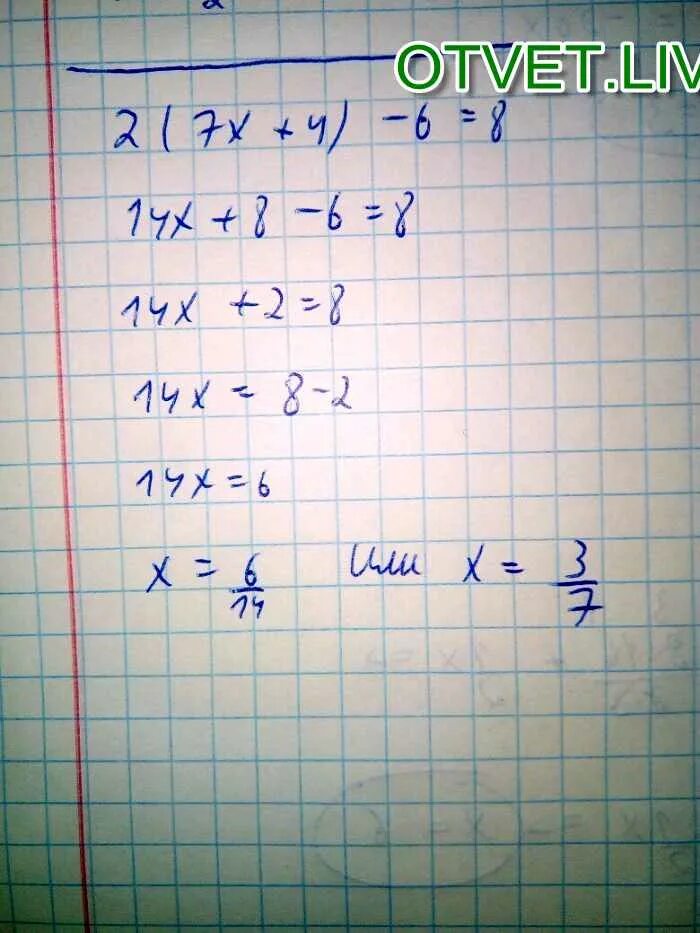 2
OTVET.LIV
2(7x+4) -6=8
14x+8-6=8
14x +2=8
14x = 8-2
14x=6
x = 6/14 или x = 3/7